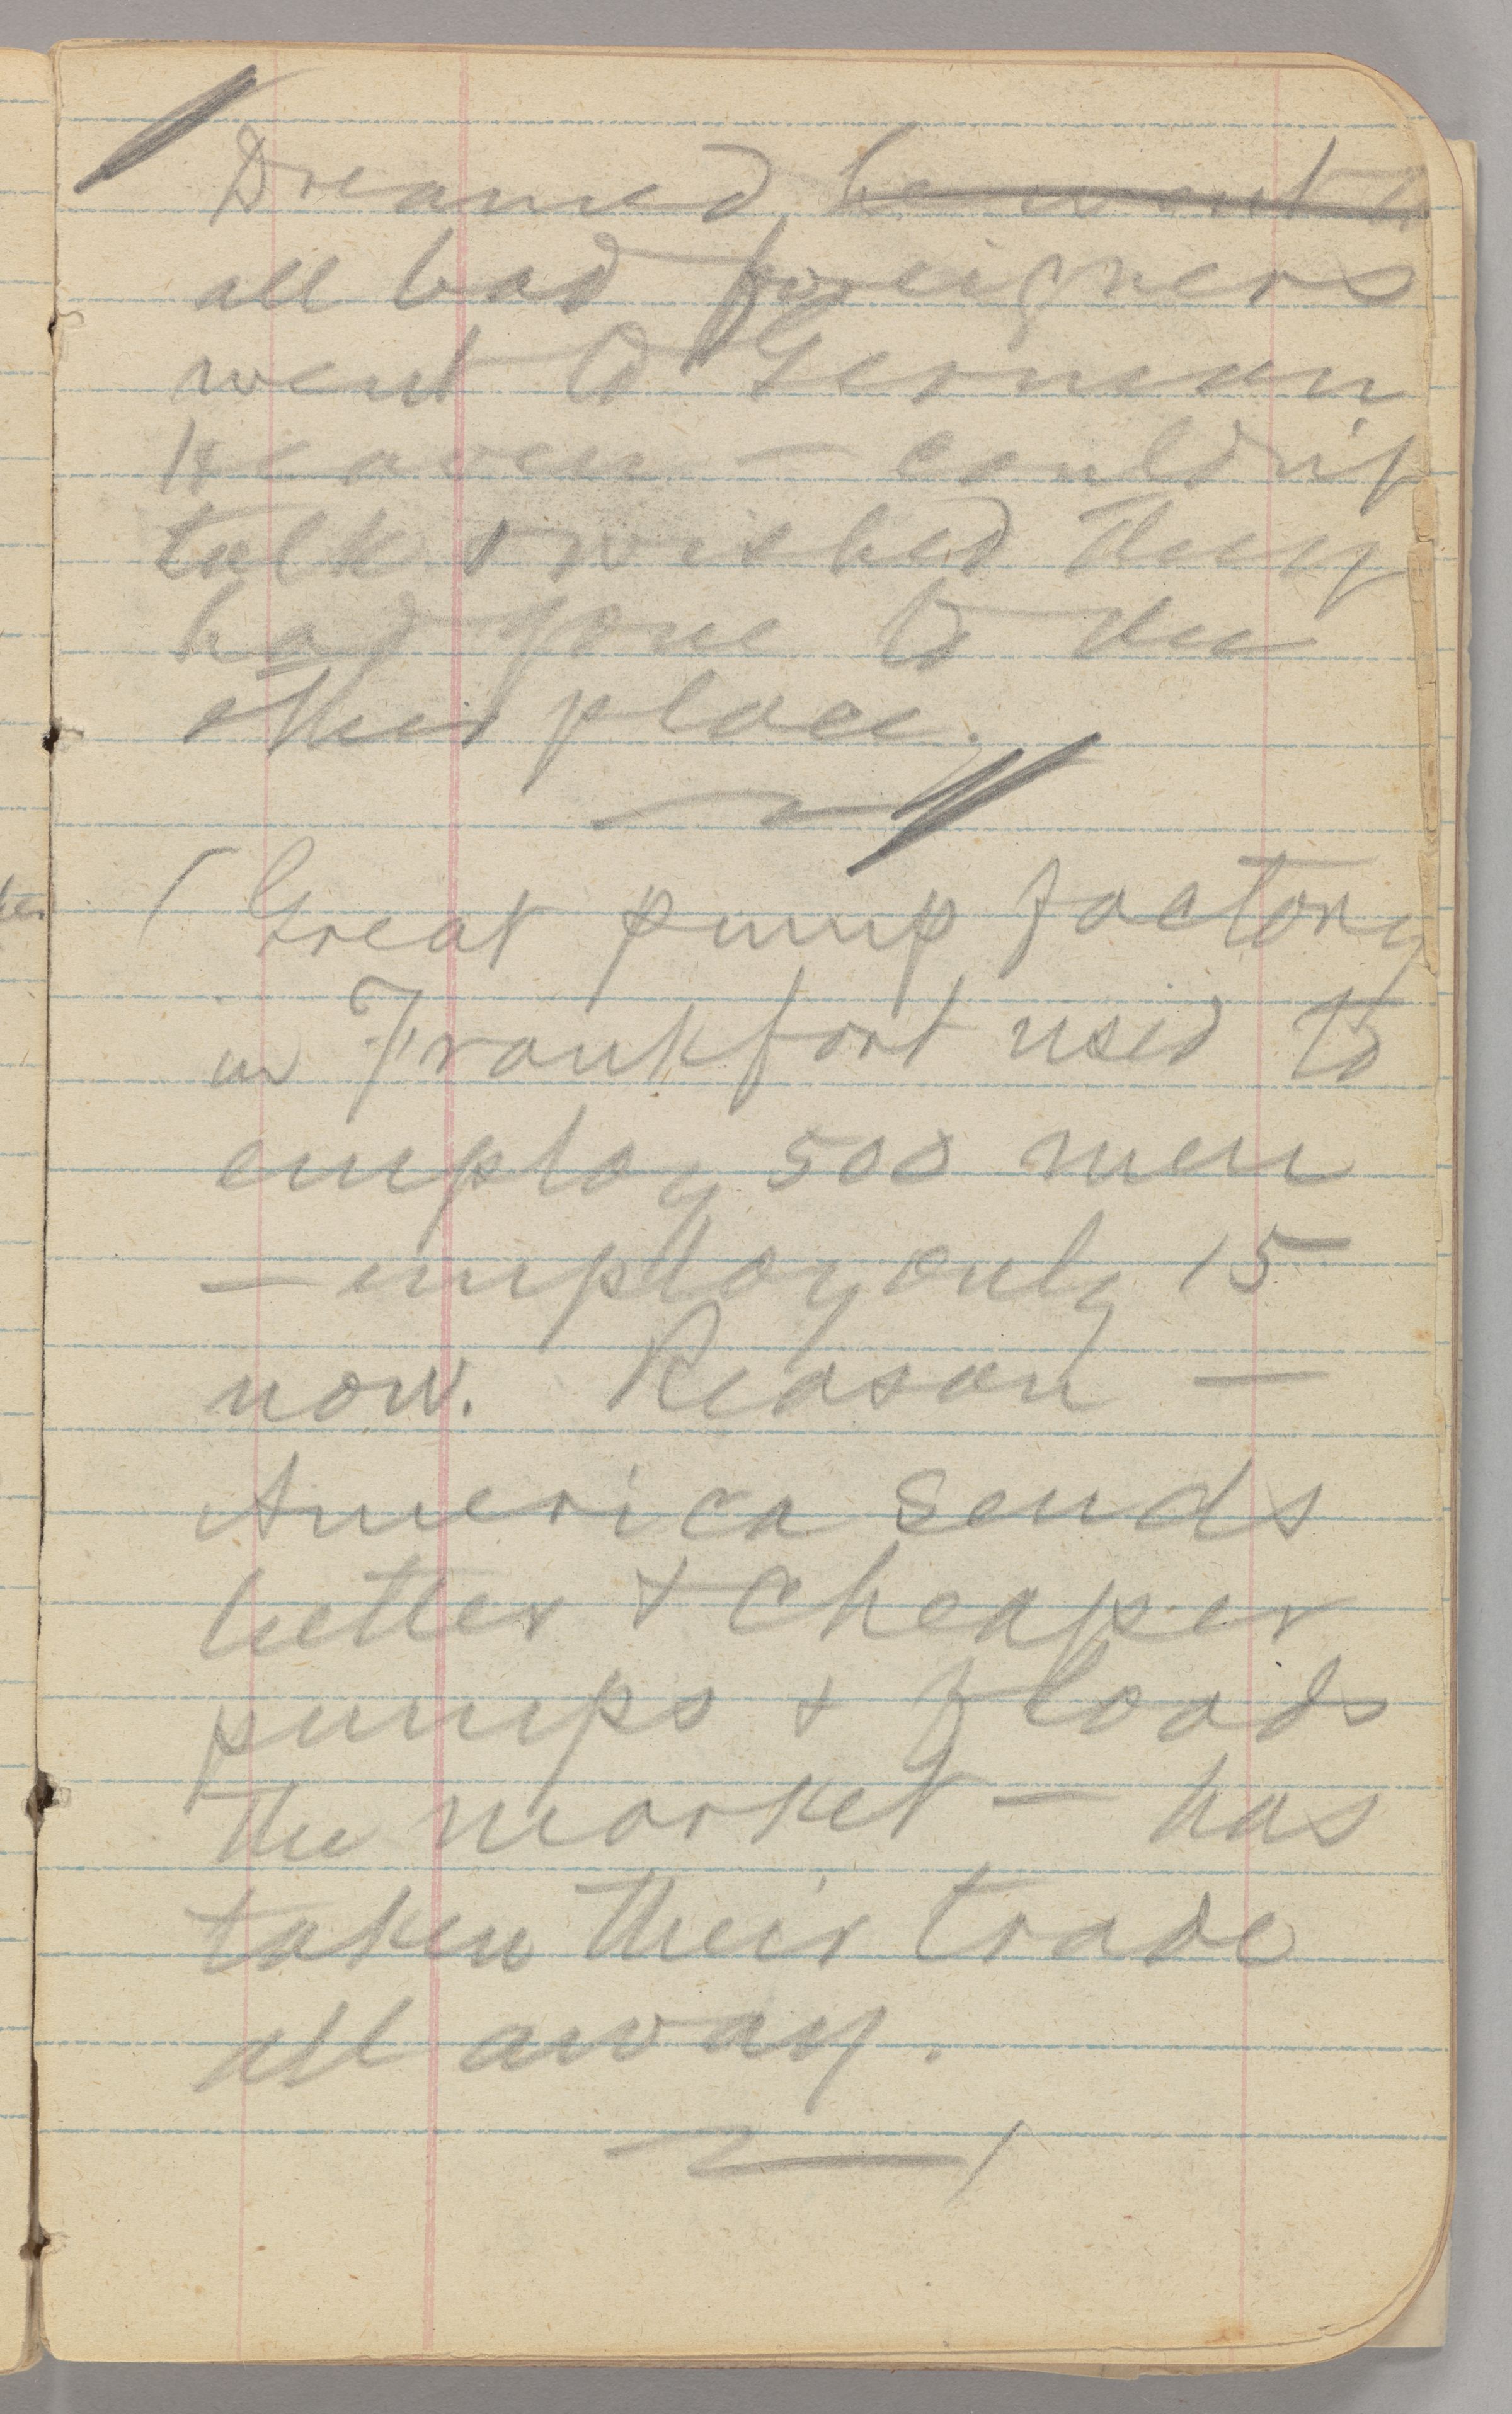 Dreamed he went to
all bad foreigners
went to German
Heaven — couldn't
talk & wished they
had gone to the
other place.
Great pump factory
in Frankfort used to
employ 500 men
— employ only 15
now. Reason —
America sends
better & cheaper
pumps & floods
the market — has
taken their trade
all away.